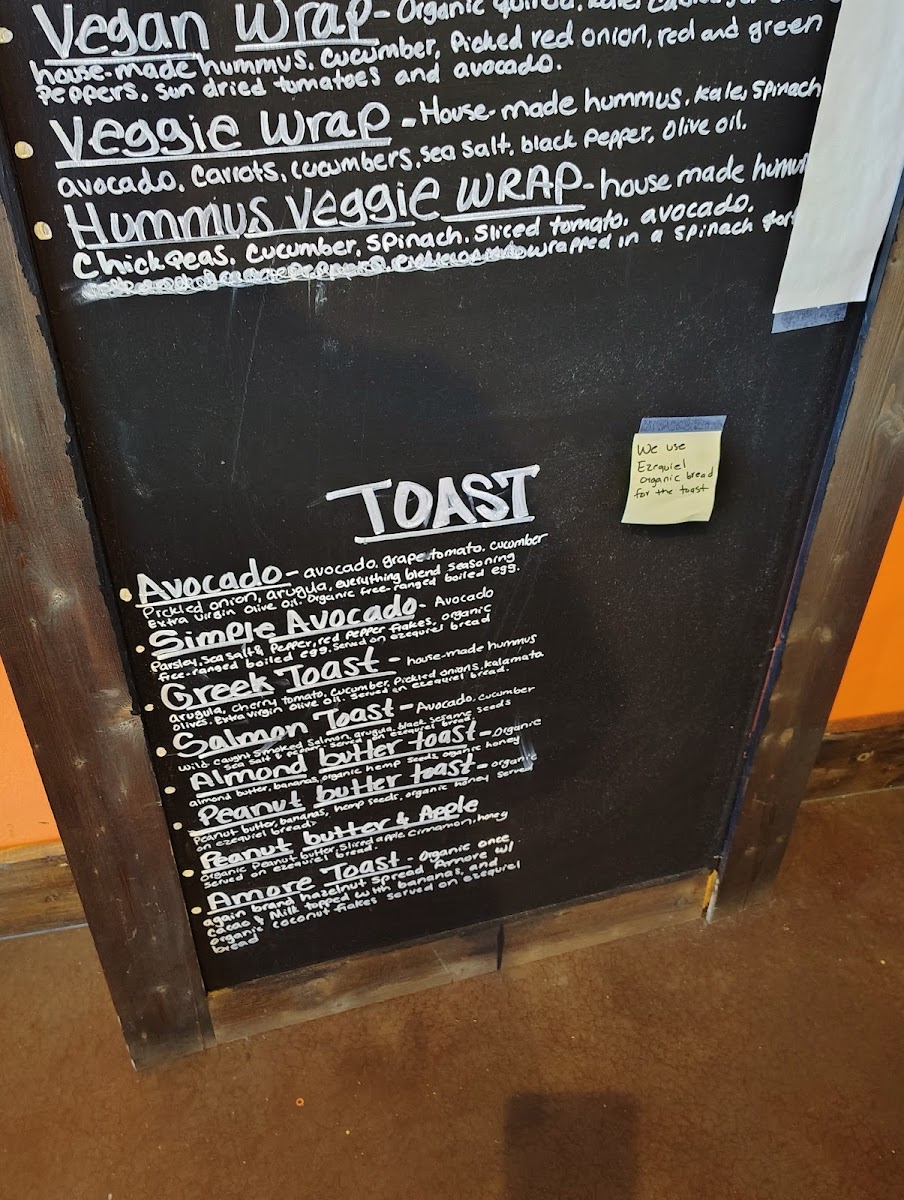 Vegan Wrap - Organic quinoa, kale,
house-made hummus, cucumber, Picked red onion, red and green
Peppers, sun dried tomatoes and avocado.
Veggie Wrap - House-made hummus, kale, spinach
avocado, Carrots, cucumbers, sea salt, black pepper, olive oil.
Hummus Veggie WRAP - house made hummu
Chickpeas, cucumber, spinach, sliced tomato, avocado,
wrapped in a spinach
We use
Ezequiel
organic bread
for the toast
TOAST
Avocado - avocado, grape tomato, cucumber
Pickled onion, arugula, everything blend seasoning
Extra virgin olive oil. Organic free-ranged boiled egg.
Simple Avocado - Avocado
Parsley, sea salt & Pepper, red pepper flakes, organic
free-ranged boiled egg. served on ezequiel bread
Greek Toast - house-made hummus
arugula, cherry tomato, cucumber, pickled onions, kalamata
olives, Extra virgin olive oil. Served on ezequiel bread.
Salmon Toast - Avocado, cucumber
wild caught smoked salmon, arugula, black sesame seeds
sea salt & pepper served on ezequiel bread
Almond butter toast - organic
almond butter, bananas, organic hemp seeds, organic honey
Peanut butter toast - organic
Peanut butter, bananas, hemp seeds, organic honey served
on ezequiel bread
Peanut butter & Apple
organic Peanut butter, sliced apple, cinnamon, honey
served on ezequiel bread.
Amore Toast - organic once
again brand hazelnut spread Amore w/
cacao & Milk topped with bananas, and
organic coconut flakes served on ezequiel
bread